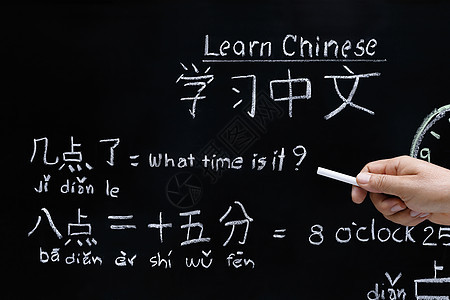 Learn Chinese
学习中文
几点了 = what time is it?
jǐ diǎn le
八点二十五分 = 8 o'clock 25
bā diǎn èr shí wǔ fēn